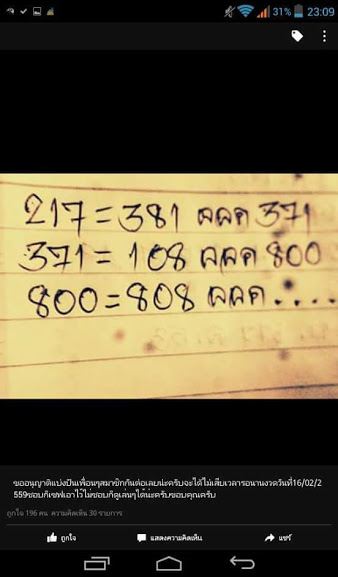 31% 23:09
217 = 381 ผลลค 371
371 = 108 ผลลค 800
800 = 808 ผลลค ....
ขออนุญาติแบ่งปันเพื่อนๆสมาชิกกันต่อเลยน่ะครับจะได้ไม่เสียเวลารอนานงวดวันที่16/02/2
559ชอบก็เซฟเอาไว้ไม่ชอบก็ดูเล่นๆได้น่ะครับขอบคุณครับ
ถูกใจ 196 คน ความคิดเห็น 30 รายการ
ถูกใจ แสดงความคิดเห็น แชร์